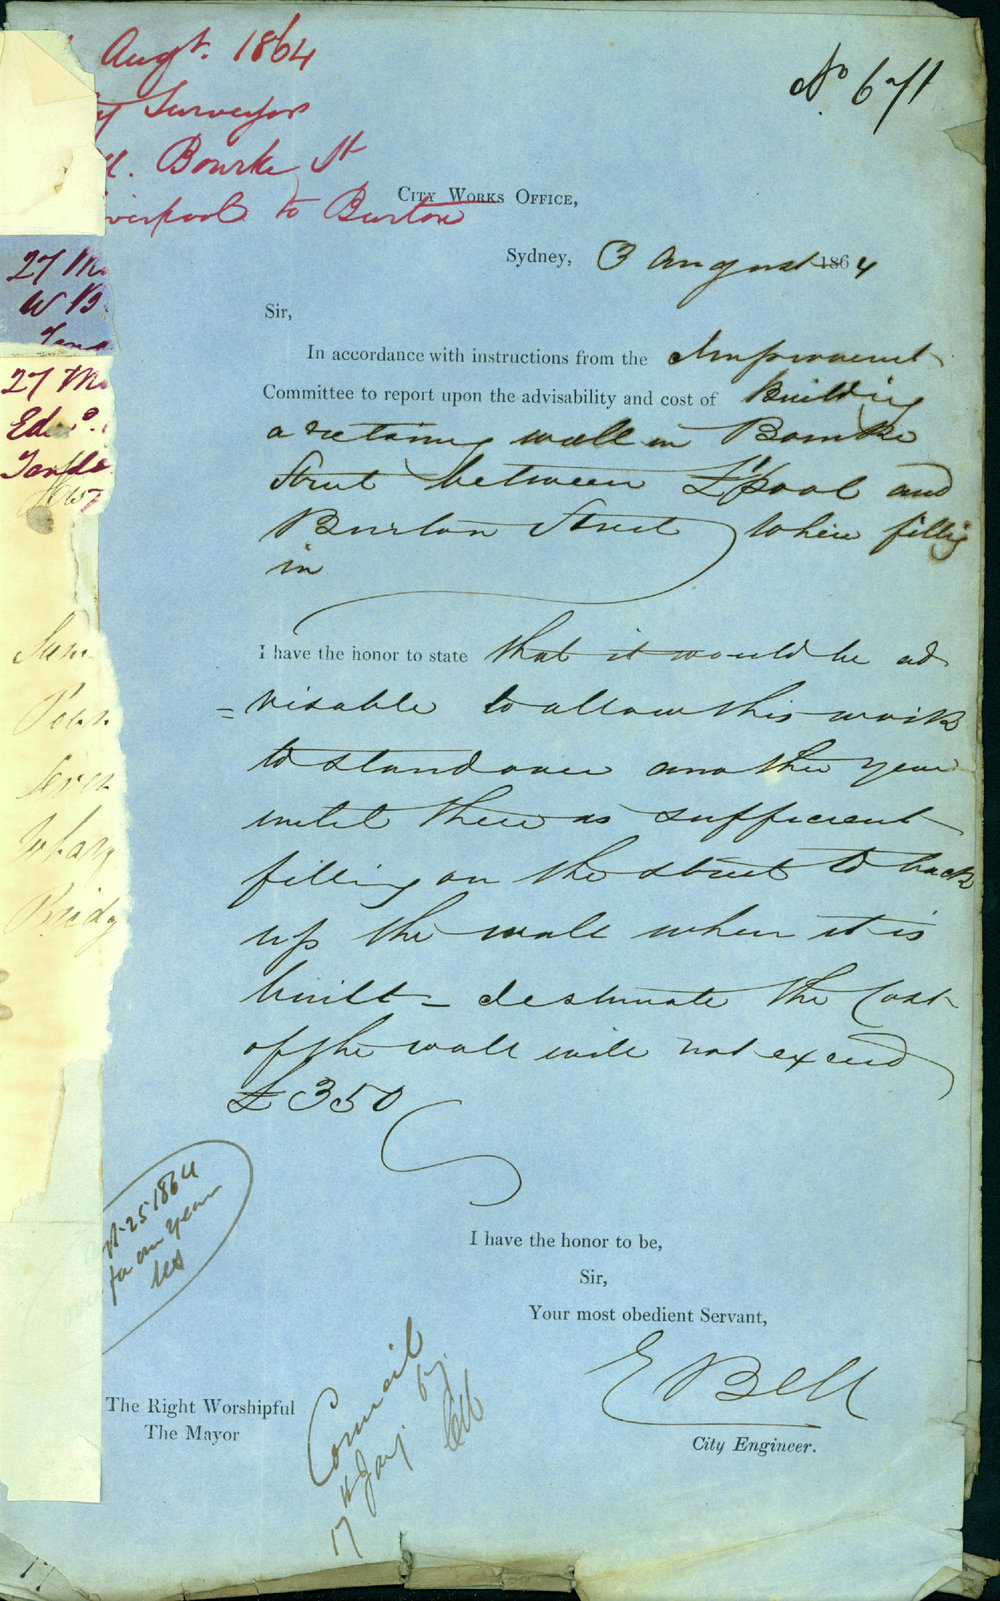 Augt. 1864
Surveyor
Bourke St
verpool to Burton
No. 671
CITY WORKS OFFICE,
Sydney, 3 August 1864
27 M
W B
Tend
27 Ma
Edwd.
Tende
Sir,
In accordance with instructions from the Improvement
Committee to report upon the advisability and cost of Building
a retaining wall in Bourke
Street between L'pool and
Burton Street where fillig
in
I have the honor to state that it would be ad
=visable to allow this work
to stand over another year
until there is sufficient
filling on the street to back
up the wall when it is
built – I estimate the Cost
of the wall will not exceed
£350
Sum
Seven
Wharf
Bridg
pt 25 1864
for one year
I have the honor to be,
Sir,
Your most obedient Servant,
E Bell
City Engineer.
The Right Worshipful
The Mayor
Council
17 Jany. 65
17